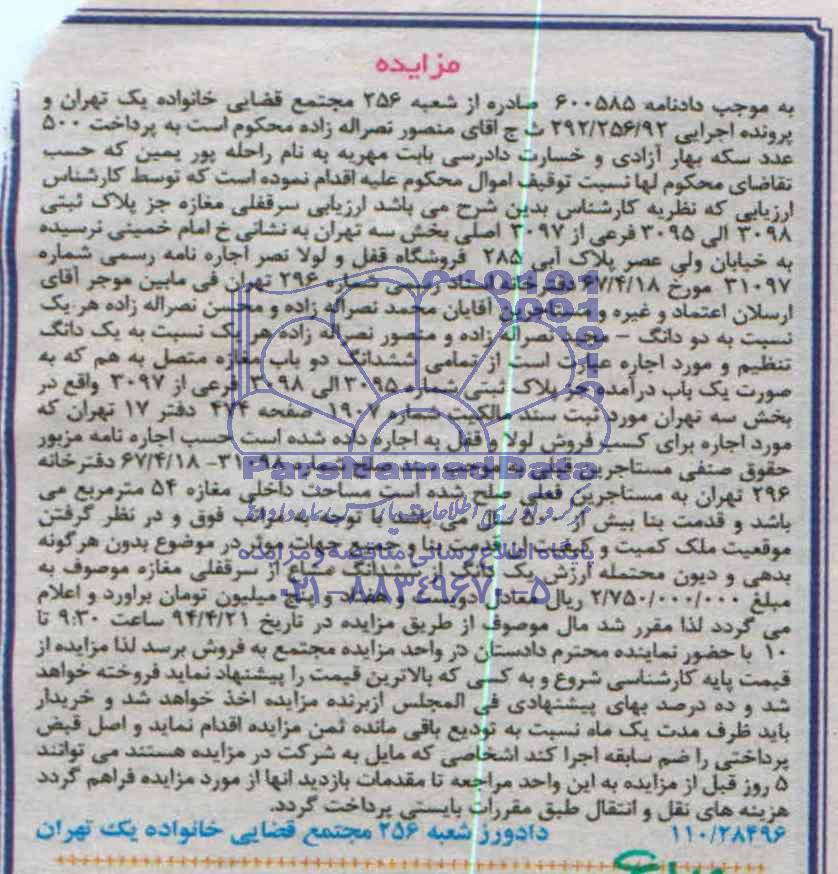 مزایده
به موجب دادنامه ۶۰۰۵۸۵ صادره از شعبه ۲۵۶ مجتمع قضایی خانواده یک تهران و
پرونده اجرایی ۲۹۲/۲۵۶/۹۲ ث ج آقای منصور نصراله زاده محکوم است به پرداخت ۵۰۰
عدد سکه بهار آزادی و خسارت دادرسی بابت مهریه به نام راحله پور یمین که حسب
تقاضای محکوم لها نسبت توقیف اموال محکوم علیه اقدام نموده است که توسط کارشناس
ارزیابی که نظریه کارشناس بدین شرح می باشد ارزیابی سرقفلی مغازه جز پلاک ثبتی
۳۰۹۸ الی ۳۰۹۵ فرعی از ۳۰۹۷ اصلی بخش سه تهران به نشانی خ امام خمینی نرسیده
به خیابان ولی عصر پلاک آبی ۲۸۵ فروشگاه قفل و لولا نصر اجاره نامه رسمی شماره
۳۱۰۹۷ مورخ ۶۷/۴/۱۸ دفترخانه اسناد رسمی شماره ۲۹۶ تهران فی مابین موجر آقای
ارسلان اعتماد و غیره و مستاجرین آقایان محمد نصراله زاده و محسن نصراله زاده هر یک
نسبت به دو دانگ – مجید نصراله زاده و منصور نصراله زاده هر یک نسبت به یک دانگ
تنظیم و مورد اجاره عبارت است از تمامی ششدانگ دو باب مغازه متصل به هم که به
صورت یک باب درآمده جز پلاک ثبتی شماره ۳۰۹۵ الی ۳۰۹۸ فرعی از ۳۰۹۷ واقع در
بخش سه تهران مورد ثبت سند مالکیت شماره ۱۹۰۷ صفحه ۲۷۴ دفتر ۱۷ تهران که
مورد اجاره برای کسب فروش لولا و قفل به اجاره داده شده است حسب اجاره نامه مزبور
حقوق صنفی مستاجرین قبلی به موجب سند صلح شماره ۳۱۰۹۸- ۶۷/۴/۱۸ دفترخانه
ParsNamadData
۲۹۶ تهران به مستاجرین فعلی صلح شده است مساحت داخلی مغازه ۵۴ مترمربع می
باشد و قدمت بنا بیش از ۵۰ سال می باشد با توجه به مراتب فوق و در نظر گرفتن
موقعیت ملک کمیت و کیفیت آن قدمت بنا و جمیع جهات موثر در موضوع بدون هرگونه
پایگاه اطلاع رسانی مناقصه و مزایده
بدهی و دیون محتمله ارزش یک دانگ از ششدانگ مشاع از سرقفلی مغازه موصوف به
۰۲۱-۸۸۳۴۹۶۷۰-۵
مبلغ ۲/۷۵۰/۰۰۰/۰۰۰ ریال معادل دویست و هفتاد و پنج میلیون تومان براورد و اعلام
می گردد لذا مقرر شد مال موصوف از طریق مزایده در تاریخ ۹۴/۴/۲۱ ساعت ۹:۳۰ تا
۱۰ با حضور نماینده محترم دادستان در واحد مزایده مجتمع به فروش برسد لذا مزایده از
قیمت پایه کارشناسی شروع و به کسی که بالاترین قیمت را پیشنهاد نماید فروخته خواهد
شد و ده درصد بهای پیشنهادی فی المجلس ازبرنده مزایده اخذ خواهد شد و خریدار
باید ظرف مدت یک ماه نسبت به تودیع باقی مانده ثمن مزایده اقدام نماید و اصل قبض
پرداختی را ضم سابقه اجرا کند اشخاصی که مایل به شرکت در مزایده هستند می توانند
۵ روز قبل از مزایده به این واحد مراجعه تا مقدمات بازدید انها از مورد مزایده فراهم گردد
هزینه های نقل و انتقال طبق مقررات بایستی پرداخت گردد.
۱۱۰/۲۸۴۹۶ دادورز شعبه ۲۵۶ مجتمع قضایی خانواده یک تهران